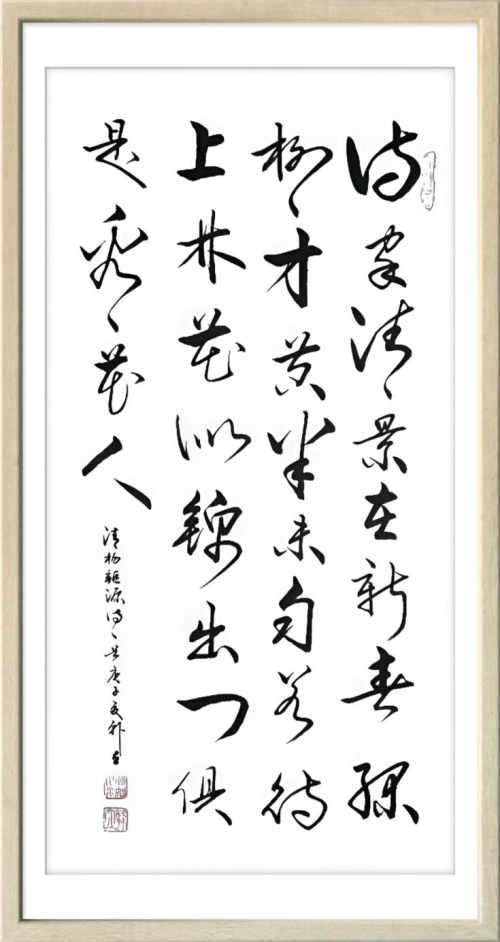 诗家清景在新春绿
柳才黄半未匀若待
上林花似锦出门俱
是看花人
清杨 源诗 庚子夏